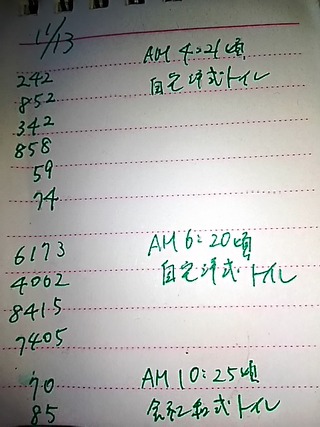 11/13
242 AM 4:21頃
852 自宅洋式トイレ
342
858
59
74
6173 AM 6:20頃
4062 自宅洋式トイレ
8415
7405
70 AM 10:25頃
85 会社和式トイレ